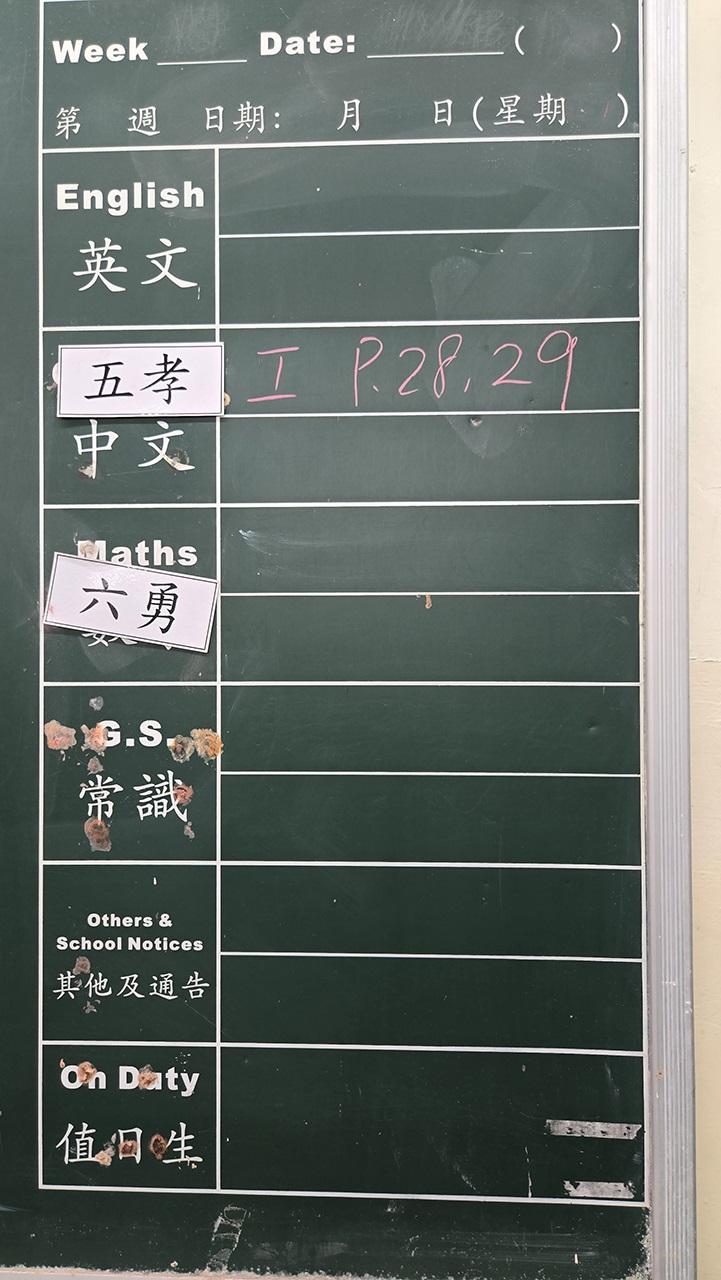 Week ____ Date: ________ ( )
第 週 日期: 月 日(星期 )
English
英文
五孝
I P.28, 29
中文
Maths
六勇
G.S.
常識
Others &
School Notices
其他及通告
On Duty
值日生